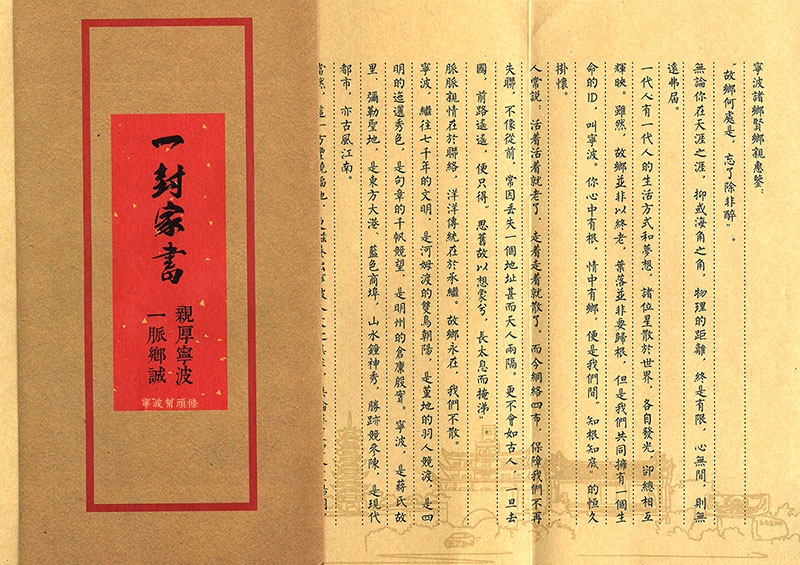 一封家書
親厚寧波
一脈鄉誠
寧波幫頭條
寧波諸鄉賢鄉親惠鑒：
“故鄉何處是，忘了除非醉”。
無論你在天涯之涯，抑或海角之角，物理的距離，終是有限，心無間，則無
遠弗屆。
一代人有一代人的生活方式和夢想，諸位星散於世界，各自發光，卻總相互
輝映。雖然，故鄉並非以終老，葉落並非要歸根，但是我們共同擁有一個生
命的ID，叫寧波。你心中有根，情中有鄉，便是我們間“知根知底”的恒久
掛懷。
人常說：活着活着就老了，走着走着就散了。而今網絡四布，保障我們不再
失聯，不像從前，常因丟失一個地址甚而天人兩隔。更不會如古人，一旦去
國，前路遙遙，便只得“思舊故以想象兮，長太息而掩涕”
脈脈親情在於聯絡，洋洋傳統在於承繼。故鄉永在，我們不散。
寧波，繼往七千年的文明，是河姆渡的雙鳥朝陽，是堇地的羽人競渡，是四
明的迤邐秀色，是句章的千帆競望，是明州的倉廩殷實。寧波，是蔣氏故
里、彌勒聖地，是東方大港、藍色商埠，山水鐘神秀，勝跡競參陳，是現代
都市，亦古風江南。